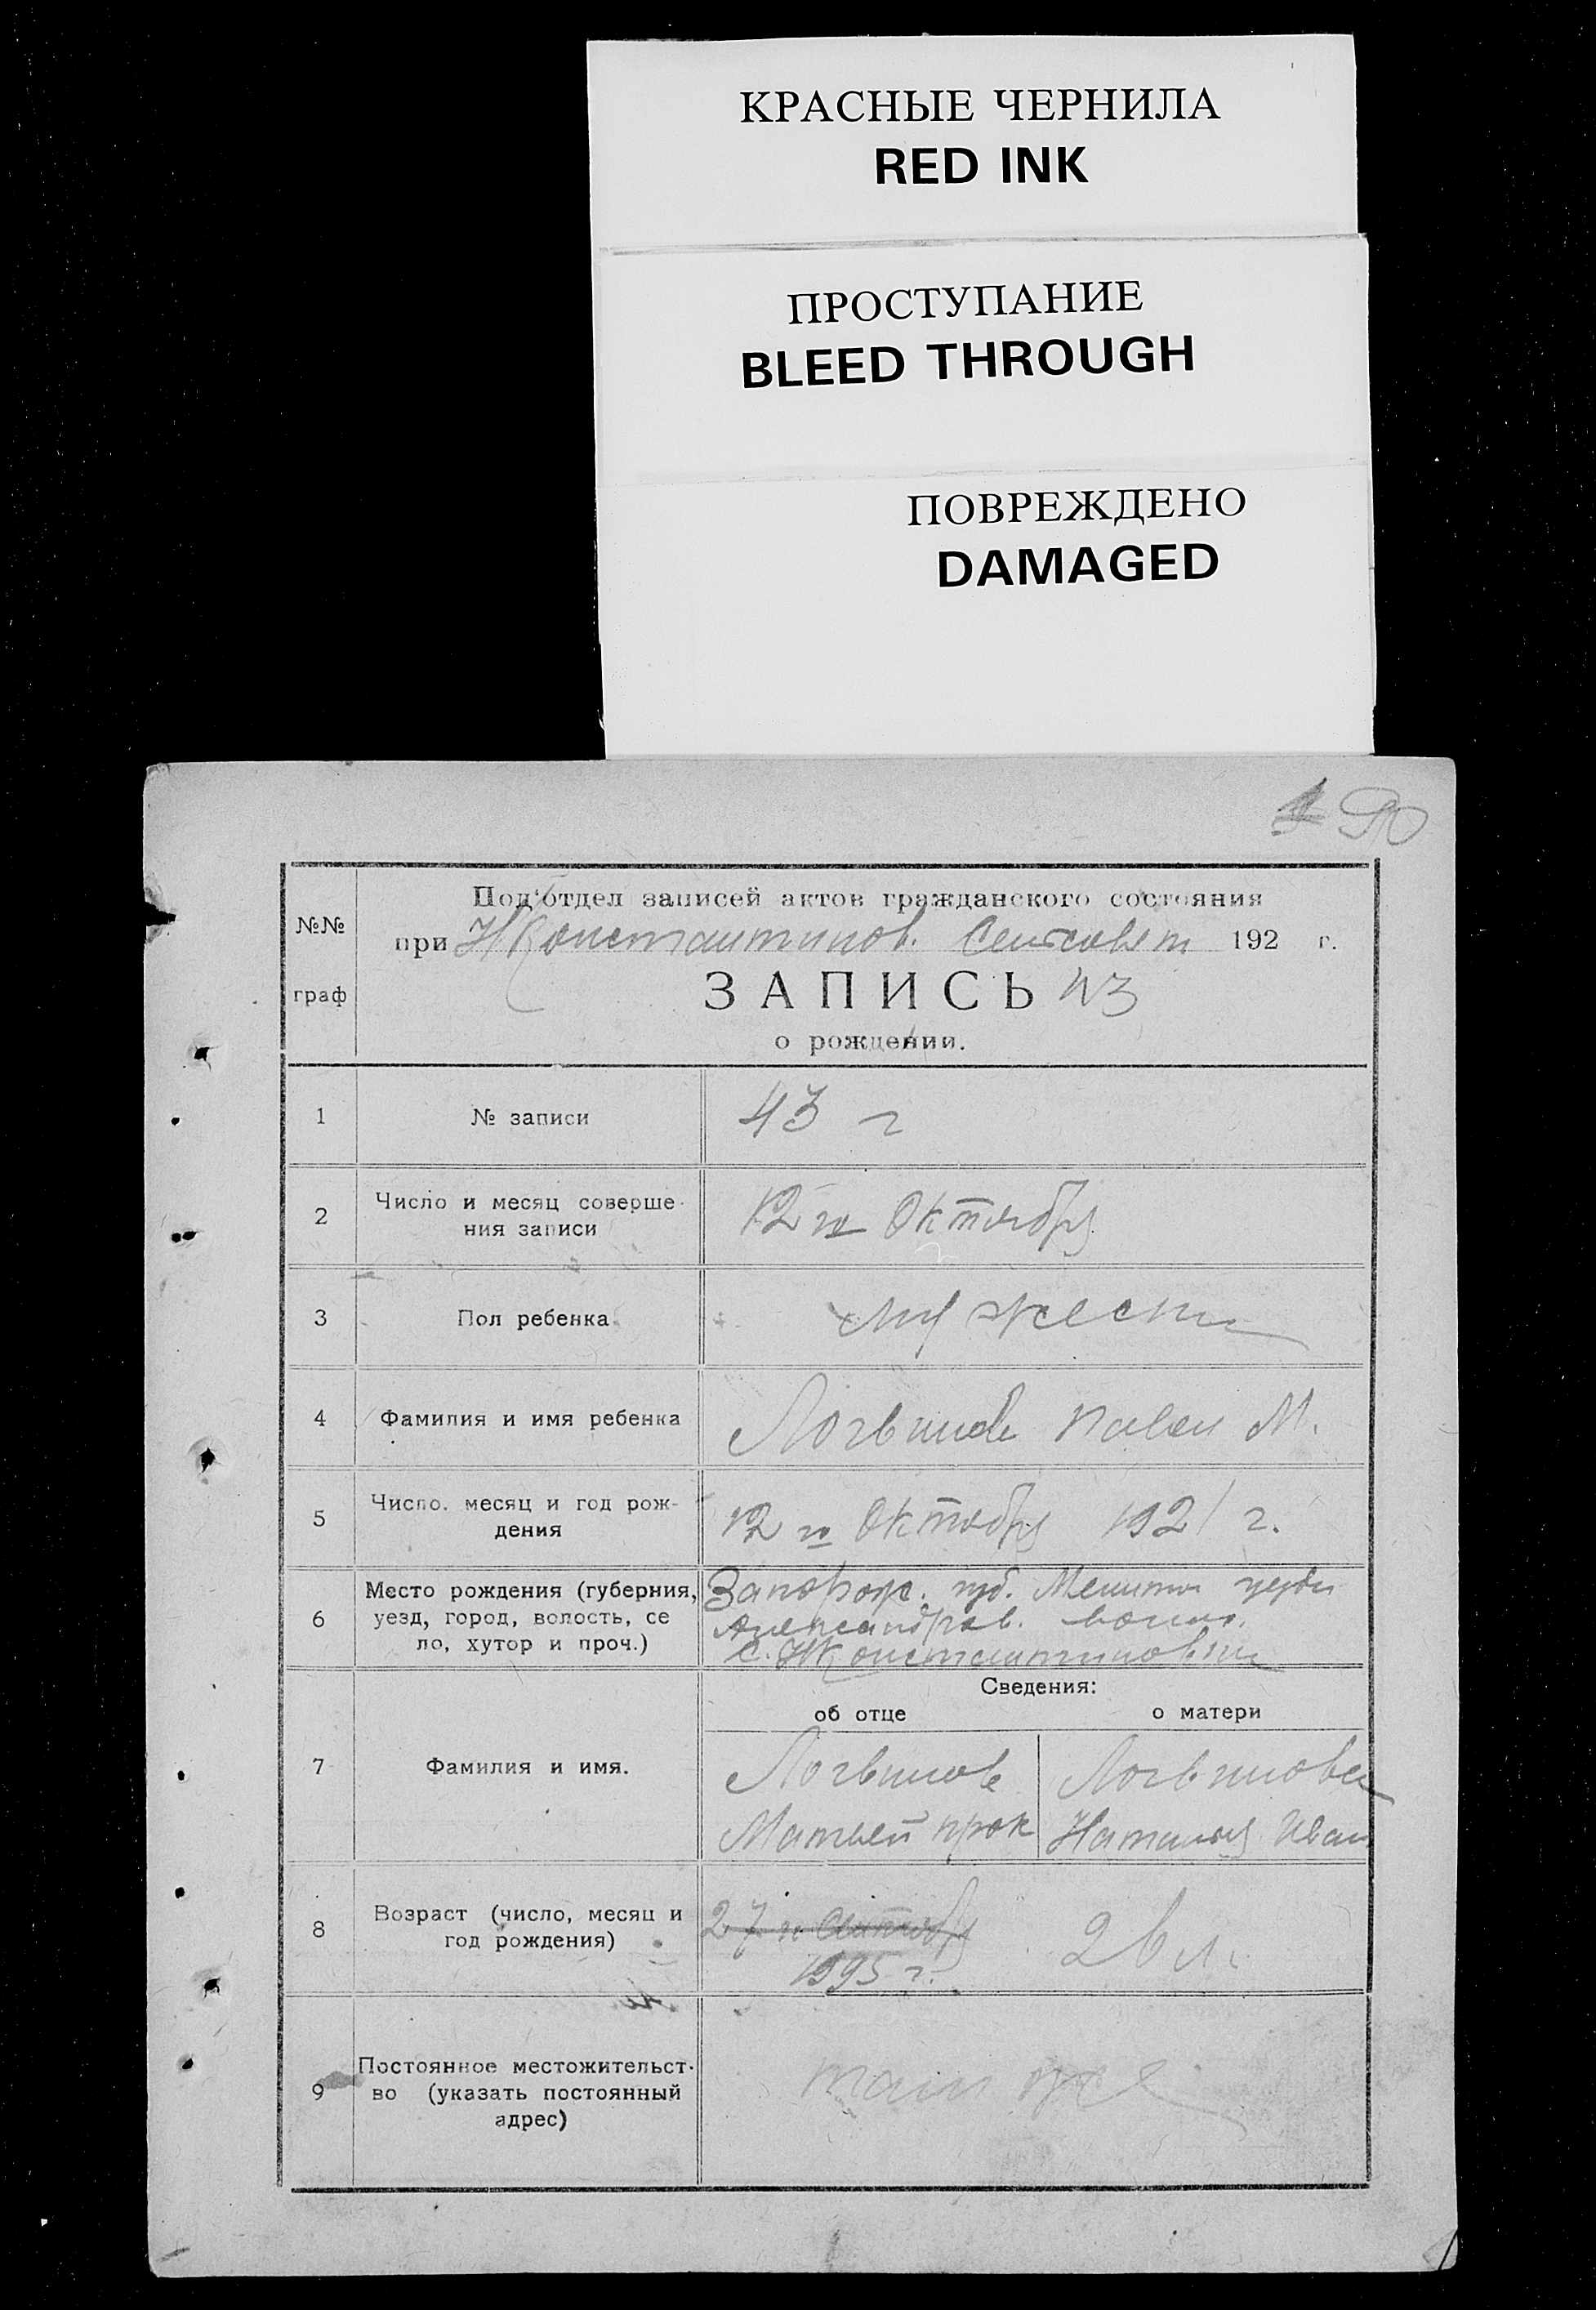 КРАСНЫЕ ЧЕРНИЛА
RED INK
ПРОСТУПАНИЕ
BLEED THROUGH
ПОВРЕЖДЕНО
DAMAGED
№№ граф
Под'отдел записей актов гражданского состояния
при НКонстантинов. Сельсовет 192 г.
ЗАПИСЬ 43
о рождении.
1 № записи 43
2 Число и месяц соверше-
ния записи 12 го Октября
3 Пол ребенка мужеск
4 Фамилия и имя ребенка Логвинов Павел М.
5 Число. месяц и год рож-
дения 12 го Октября 1921 г.
6 Место рождения (губерния, Запорож. губ. Мелитоп уезда
уезд, город, волость, се Александров. волос.
ло, хутор и проч.) с. НКонстантиновки
Сведения:
об отце о матери
7 Фамилия и имя. Логвинов Логвинова
Матвей прок Наталья Иван
8 Возраст (число, месяц и
год рождения) 27
1995 г. 26 л.
9 Постоянное местожительст-
во (указать постоянный там же
адрес)